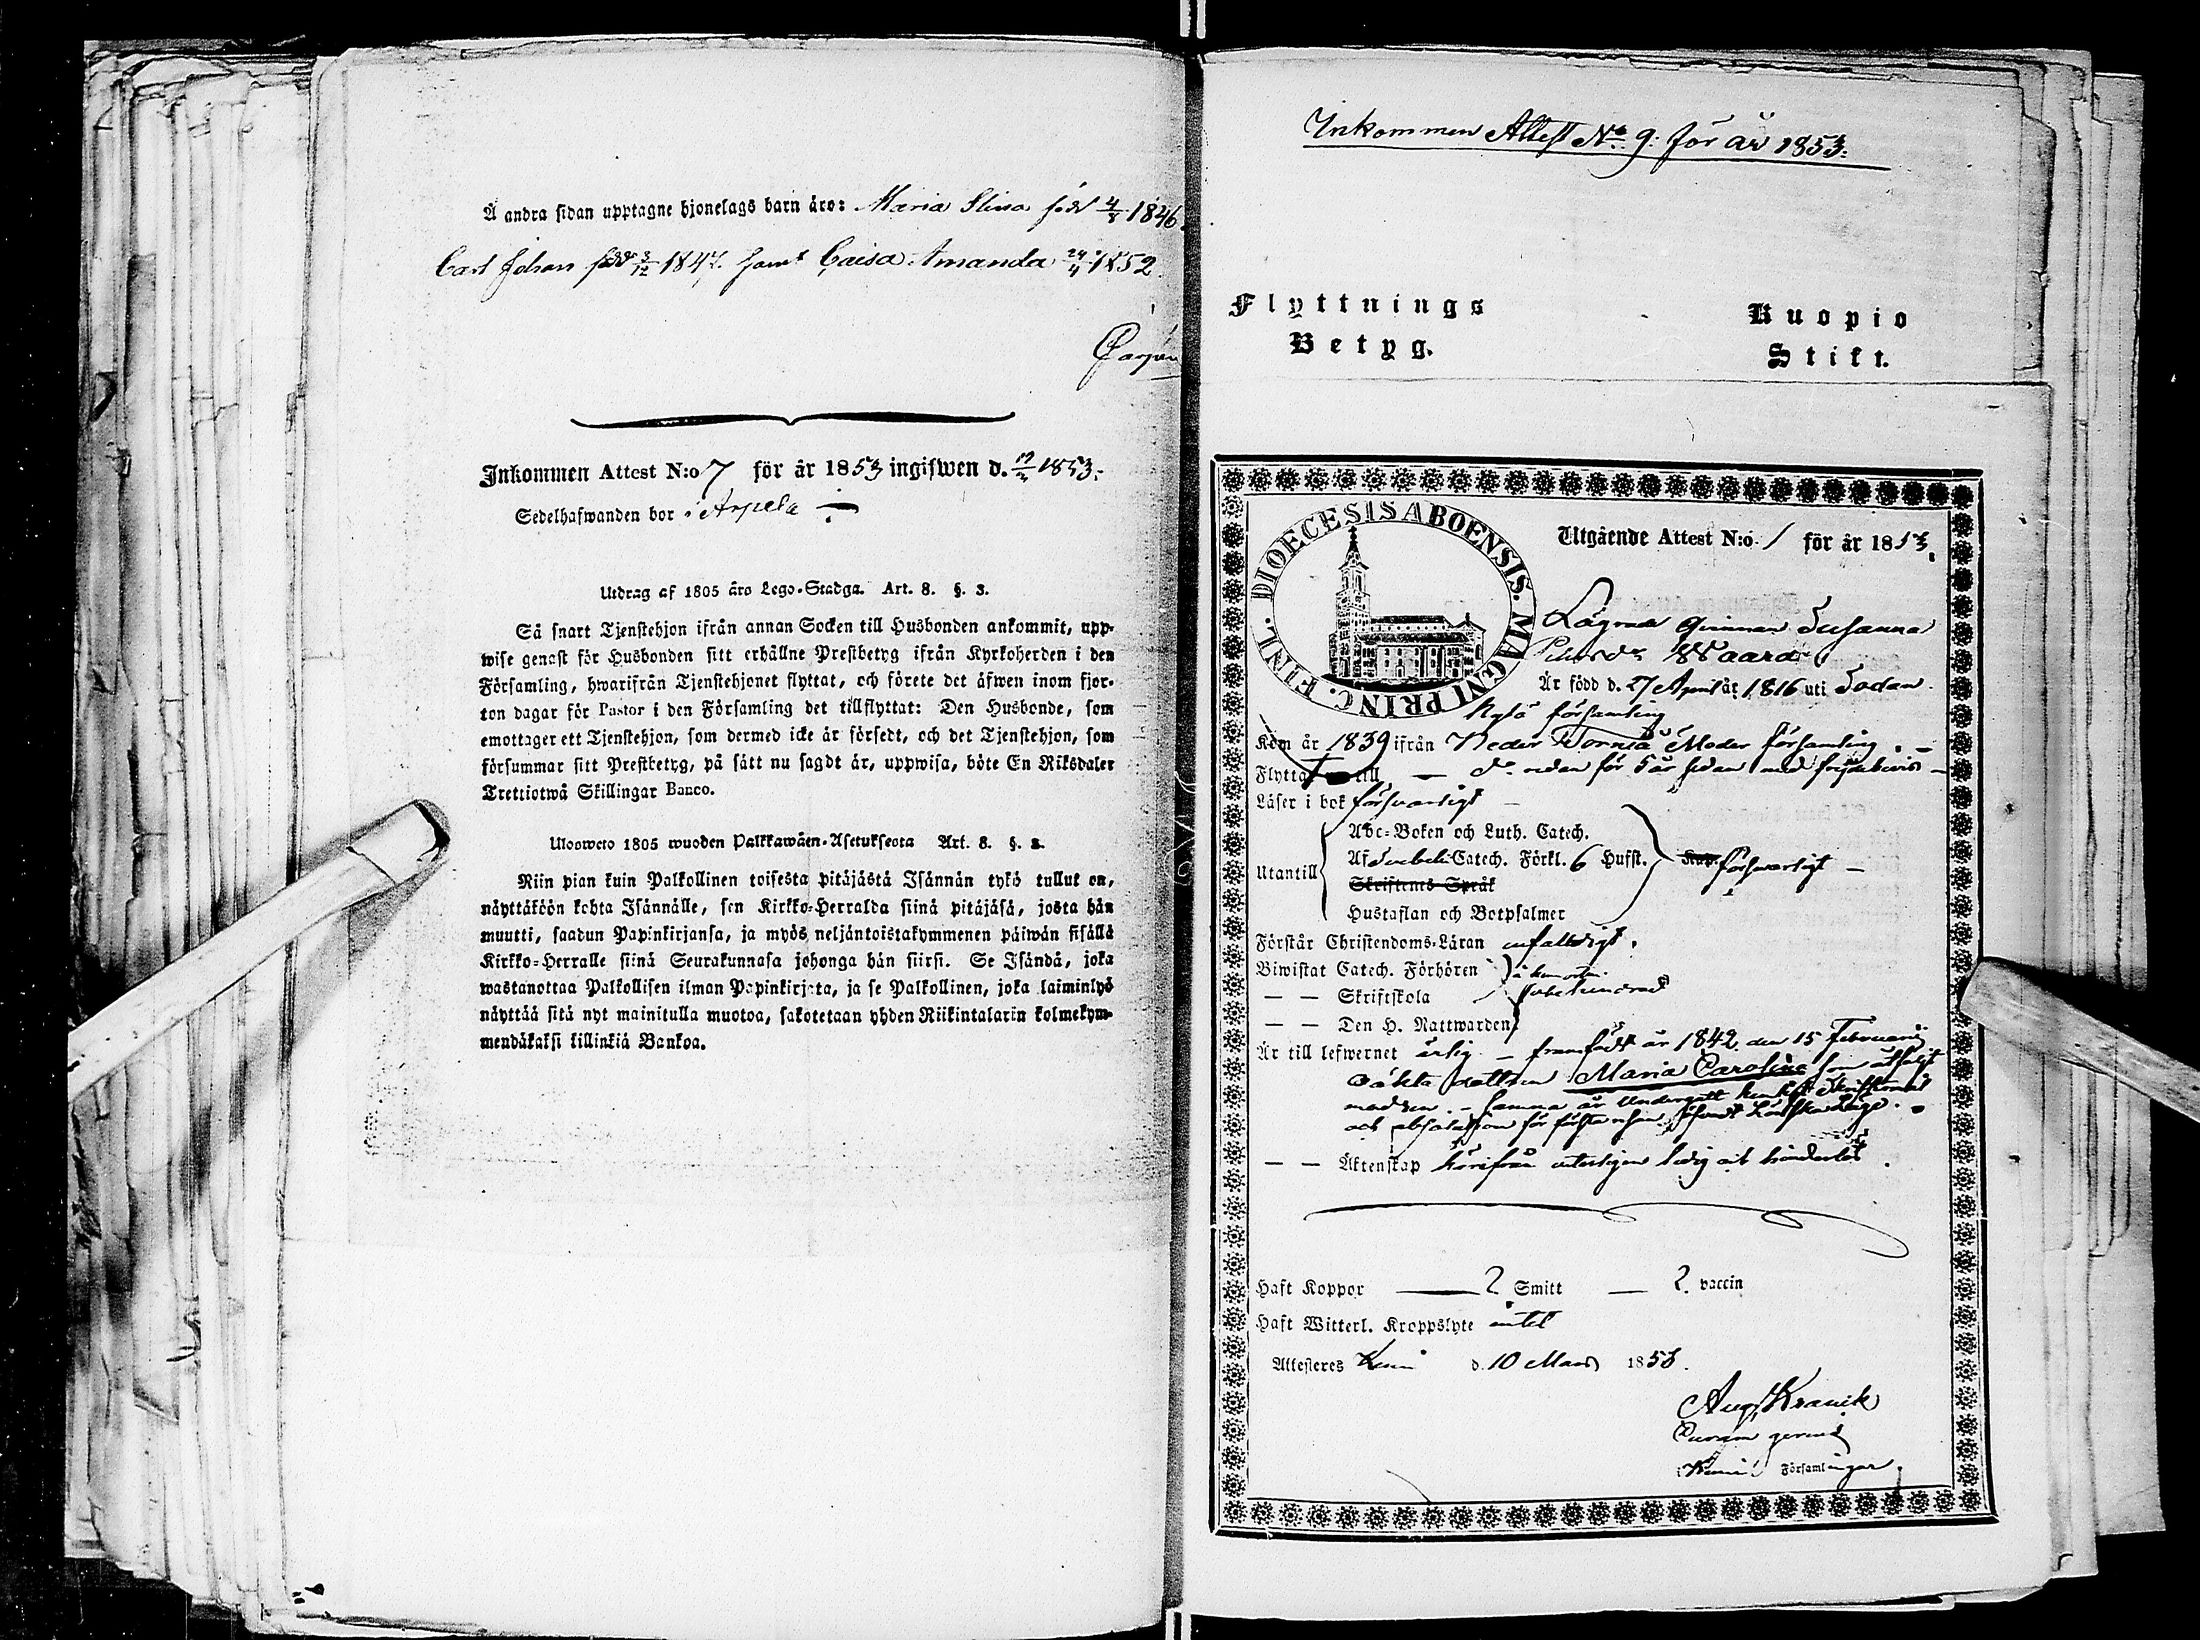 Å andra sidan upptagne hjonelags barn äro: Maria Stina född 4/8 1846.
Carl Johan född 3/12 1847. samt Caisa Amanda 24/4 1852.
Inkommen Attest N:o 7 för år 1853 ingifwen d. 1853.
Sedelhafwanden bor i Arpela
Utdrag af 1805 års Lego-Stadga. Art. 8. §. 3.
Så snart Tjenstehjon ifrån annan Socken till Husbonden ankommit, upp-
wise genast för Husbonden sitt erhållne Prestbetyg ifrån Kyrkoherden i den
Församling, hwarifrån Tjenstehjonet flyttat, och förete det äfwen inom fjor-
ton dagar för Pastor i den Församling det tillflyttat: Den Husbonde, som
emottager ett Tjenstehjon, som dermed icke är försedt, och det Tjenstehjon, som
försummar sitt Prestbetyg, på sätt nu sagdt är, uppwisa, böte En Riksdaler
Trettiotwå Skillingar Banco.
Ulosweto 1805 wuoden Palkkawäen-Asetuksesta Art. 8. §. 3.
Niin pian kuin Palkollinen toisesta pitäjästä Isännän tykö tullut on,
näyttäköön kohta Isännälle, sen Kirkko-Herralda siinä pitäjäsä, josta hän
muutti, saadun Papinkirjansa, ja myös neljäntoistakymmenen päiwän sisällä
Kirkko-Herralle siinä Seurakunnasa johonga hän siirsi. Se Isändä, joka
wastanottaa Palkollisen ilman Papinkirjata, ja se Palkollinen, joka laiminlyö
näyttää sitä nyt mainitulla muotoa, sakotetaan yhden Riikintalarin kolmekym-
mendäkaksi killinkiä Bankoa.
Inkommen Attest No. 9. för år 1853.
Flyttnings Betyg.
Kuopio Stift.
DIOECESIS ABOENSIS. MAGNI PRINC. FINL.
Utgående Attest N:o 1 för år 1853.
Lägrade Qvinnan Susanna
Waara
Är född d. 27 April år 1816 uti Sodan
kylä församling
Kom år 1839 ifrån Neder Torneå Moder församling.
Flyttat till — do redan för 5 år sedan med
Läser i bok försvarligt
Utantill
Abc-Boken och Luth. Catech.
Af Svebeli Catech. Förkl. 6 Hufst. försvarligt
Skriftenes Språk
Hustaflan och Botpsalmer
Förstår Christendoms-Läran enfalldigt.
Biwistat Catech. Förhören
— — Skriftskola
— — Den H. Nattwarden
Är till lefwernet ärlig — framfödt år 1842 den 15 Februarii
oäkta dottren Maria Carolina som åtföljt
modren. — samma år undergått
och absolution för första resan
— — Äktenskap härifrån veterligen ledig och hinderlös.
Haft Koppor — 2 Smitt — 2. vaccin
Haft Witterl. Kroppslyte intet
Attesteres Kemi d. 10 Mars 1853.
Aug. Kranck
Curam gerens
Kemi Församlingar.